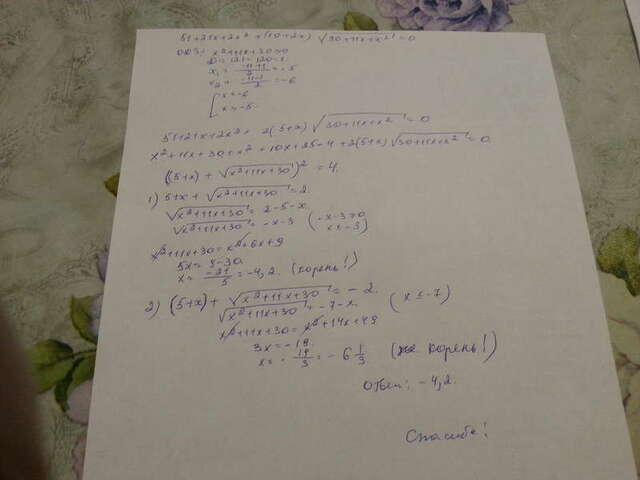 51+21x+2x² +(10+2x) √30+11x+x² = 0
ОДЗ: x²+11x+30≥0
D = 121 - 120 = 1
x₁ = (-11+1)/2 = -5
x₂ = (-11-1)/2 = -6
[ x≤-6
x≥-5
51+21x+2x² + 2(5+x) √30+11x+x² = 0
x²+11x+30+x²+10x+25-4+2(5+x)√30+11x+x² = 0
((5+x) + √x²+11x+30)² = 4.
1) 5+x + √x²+11x+30 = 2.
√x²+11x+30 = 2-5-x
√x²+11x+30 = -x-3 (-x-3≥0
x≤-3)
x²+11x+30 = x²+6x+9
5x = 9-30
x = -21/5 = -4,2. (корень!)
2) (5+x) + √x²+11x+30 = -2.
√x²+11x+30 = -7-x. (x≤-7)
x²+11x+30 = x²+14x+49
3x = -19.
x = -19/3 = -6 1/3 (не корень!)
Ответ: -4,2.
Спасибо!